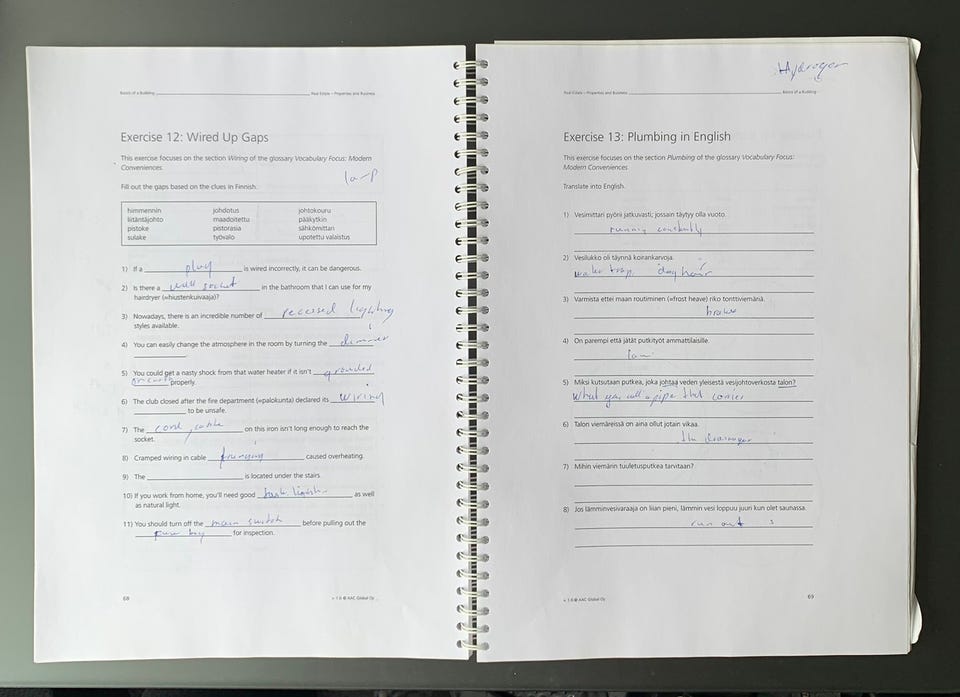 Basics of a Building
Real Estate – Properties and Business
Exercise 12: Wired Up Gaps
This exercise focuses on the section Wiring of the glossary Vocabulary Focus: Modern
Conveniences.
Fill out the gaps based on the clues in Finnish.
himmennin johdotus johtokouru
liitäntäjohto maadoitettu pääkytkin
pistoke pistorasia sähkömittari
sulake työvalo upotettu valaistus
1) If a plug is wired incorrectly, it can be dangerous.
2) Is there a wall socket in the bathroom that I can use for my
hairdryer (=hiustenkuivaaja)?
3) Nowadays, there is an incredible number of recessed lighting
styles available.
4) You can easily change the atmosphere in the room by turning the dimmer
5) You could get a nasty shock from that water heater if it isn't grounded
properly.
6) The club closed after the fire department (=palokunta) declared its wiring
to be unsafe.
7) The cord, cable on this iron isn't long enough to reach the
socket.
8) Cramped wiring in cable caused overheating.
9) The is located under the stairs.
10) If you work from home, you'll need good as well
as natural light.
11) You should turn off the main switch before pulling out the
for inspection.
68
v. 1.6 @ AAC Global Oy
Hydrogen
Real Estate – Properties and Business
Basics of a Building
Exercise 13: Plumbing in English
This exercise focuses on the section Plumbing of the glossary Vocabulary Focus:
Modern Conveniences.
Translate into English.
1) Vesimittari pyöni jatkuvasti; jossain täytyy olla vuoto.
running constantly
2) Vesilukko oli täynnä koirankarvoja.
water trap, dog hair
3) Varmista ettei maan routiminen (=frost heave) riko tonttiviemäriä.
4) On parempi että jätät putkityöt ammattilaisille.
5) Miksi kutsutaan putkea, joka johtaa veden yleisestä vesijohtoverkosta talon?
What you call a pipe that
6) Talon viemäreissä on aina ollut jotain vikaa.
7) Mihin viemärin tuuletusputkea tarvitaan?
8) Jos lämminvesivaraaja on liian pieni, lämmin vesi loppuu juuri kun olet saunassa.
run out s
v. 1.6 @ AAC Global Oy
69